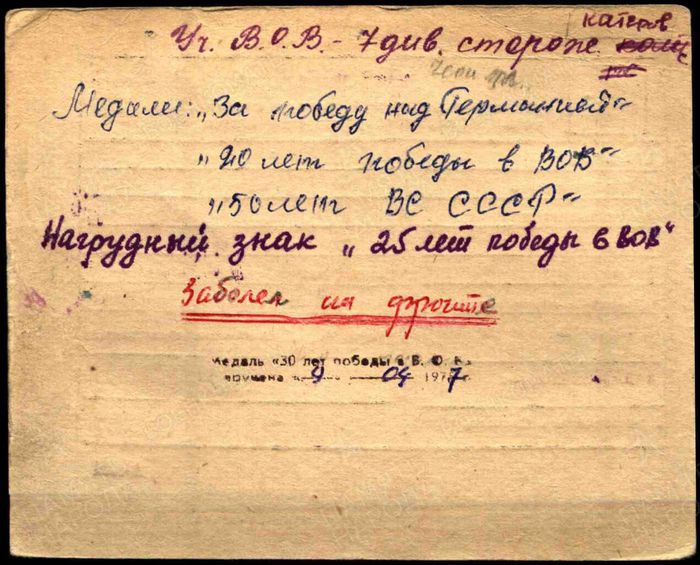 катеров
Уч. В.О.В. - 7 див. сторож.
Медали: „За победу над Германией"
„20 лет победы в ВОВ"
„50 лет ВС СССР"
Нагрудный знак „25 лет победы в ВОВ"
Заболел на фронте
Медаль «30 лет победы в В. О. В.»
вручена «9 04 1977 г.